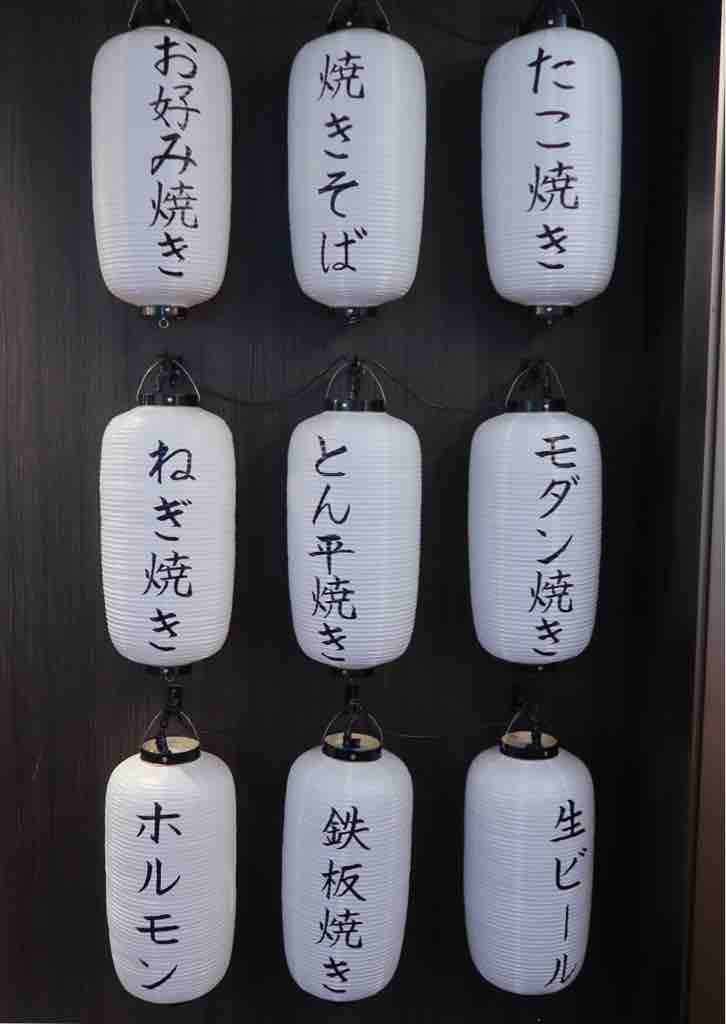 お好み焼き
焼きそば
たこ焼き
ねぎ焼き
とん平焼き
モダン焼き
ホルモン
鉄板焼き
生ビール